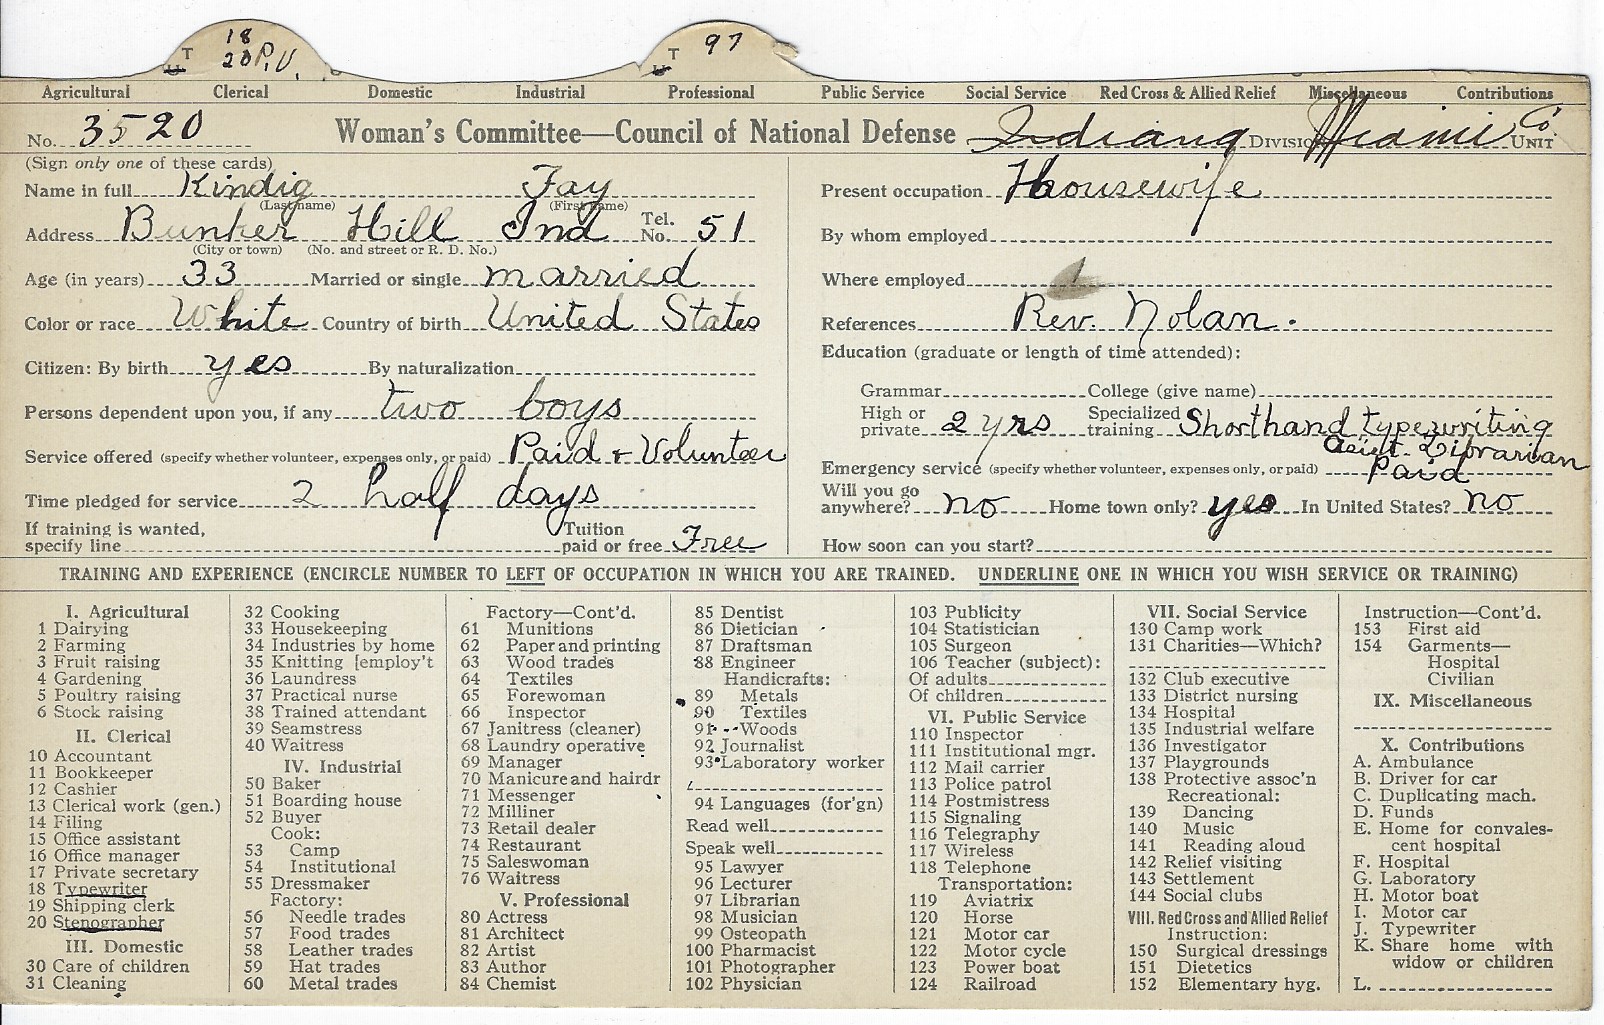 18 T 97 T
20 P.V.
Agricultural Clerical Domestic Industrial Professional Public Service Social Service Red Cross & Allied Relief Miscellaneous Contributions
No. 3520 Woman's Committee—Council of National Defense Indiana Division Miami Co. Unit
(Sign only one of these cards)
Name in full Kindig Fay
(Last name) (First name)
Address Bunker Hill Ind Tel. No. 51
(City or town) (No. and street or R. D. No.)
Age (in years) 33 Married or single married
Color or race White Country of birth United States
Citizen: By birth yes By naturalization
Persons dependent upon you, if any two boys
Service offered (specify whether volunteer, expenses only, or paid) Paid + Volunteer
Time pledged for service 2 half days
If training is wanted, Tuition
specify line paid or free Free
Present occupation Housewife
By whom employed
Where employed
References Rev. Nolan.
Education (graduate or length of time attended):
Grammar College (give name)
High or private 2 yrs Specialized training Shorthand typewriting
Asist. Librarian
Emergency service (specify whether volunteer, expenses only, or paid) Paid
Will you go anywhere? no Home town only? yes In United States? no
How soon can you start?
TRAINING AND EXPERIENCE (ENCIRCLE NUMBER TO LEFT OF OCCUPATION IN WHICH YOU ARE TRAINED. UNDERLINE ONE IN WHICH YOU WISH SERVICE OR TRAINING)
I. Agricultural
1 Dairying
2 Farming
3 Fruit raising
4 Gardening
5 Poultry raising
6 Stock raising
II. Clerical
10 Accountant
11 Bookkeeper
12 Cashier
13 Clerical work (gen.)
14 Filing
15 Office assistant
16 Office manager
17 Private secretary
18 Typewriter
19 Shipping clerk
20 Stenographer
III. Domestic
30 Care of children
31 Cleaning
32 Cooking
33 Housekeeping
34 Industries by home
35 Knitting [employ't
36 Laundress
37 Practical nurse
38 Trained attendant
39 Seamstress
40 Waitress
IV. Industrial
50 Baker
51 Boarding house
52 Buyer
Cook:
53 Camp
54 Institutional
55 Dressmaker
Factory:
56 Needle trades
57 Food trades
58 Leather trades
59 Hat trades
60 Metal trades
Factory—Cont'd.
61 Munitions
62 Paper and printing
63 Wood trades
64 Textiles
65 Forewoman
66 Inspector
67 Janitress (cleaner)
68 Laundry operative
69 Manager
70 Manicure and hairdr
71 Messenger
72 Milliner
73 Retail dealer
74 Restaurant
75 Saleswoman
76 Waitress
V. Professional
80 Actress
81 Architect
82 Artist
83 Author
84 Chemist
85 Dentist
86 Dietician
87 Draftsman
88 Engineer
Handicrafts:
89 Metals
90 Textiles
91 Woods
92 Journalist
93 Laboratory worker
94 Languages (for'gn)
Read well
Speak well
95 Lawyer
96 Lecturer
97 Librarian
98 Musician
99 Osteopath
100 Pharmacist
101 Photographer
102 Physician
103 Publicity
104 Statistician
105 Surgeon
106 Teacher (subject):
Of adults
Of children
VI. Public Service
110 Inspector
111 Institutional mgr.
112 Mail carrier
113 Police patrol
114 Postmistress
115 Signaling
116 Telegraphy
117 Wireless
118 Telephone
Transportation:
119 Aviatrix
120 Horse
121 Motor car
122 Motor cycle
123 Power boat
124 Railroad
VII. Social Service
130 Camp work
131 Charities—Which?
132 Club executive
133 District nursing
134 Hospital
135 Industrial welfare
136 Investigator
137 Playgrounds
138 Protective assoc'n
Recreational:
139 Dancing
140 Music
141 Reading aloud
142 Relief visiting
143 Settlement
144 Social clubs
VIII. Red Cross and Allied Relief
Instruction:
150 Surgical dressings
151 Dietetics
152 Elementary hyg.
Instruction—Cont'd.
153 First aid
154 Garments—
Hospital
Civilian
IX. Miscellaneous
X. Contributions
A. Ambulance
B. Driver for car
C. Duplicating mach.
D. Funds
E. Home for convales-
cent hospital
F. Hospital
G. Laboratory
H. Motor boat
I. Motor car
J. Typewriter
K. Share home with
widow or children
L.